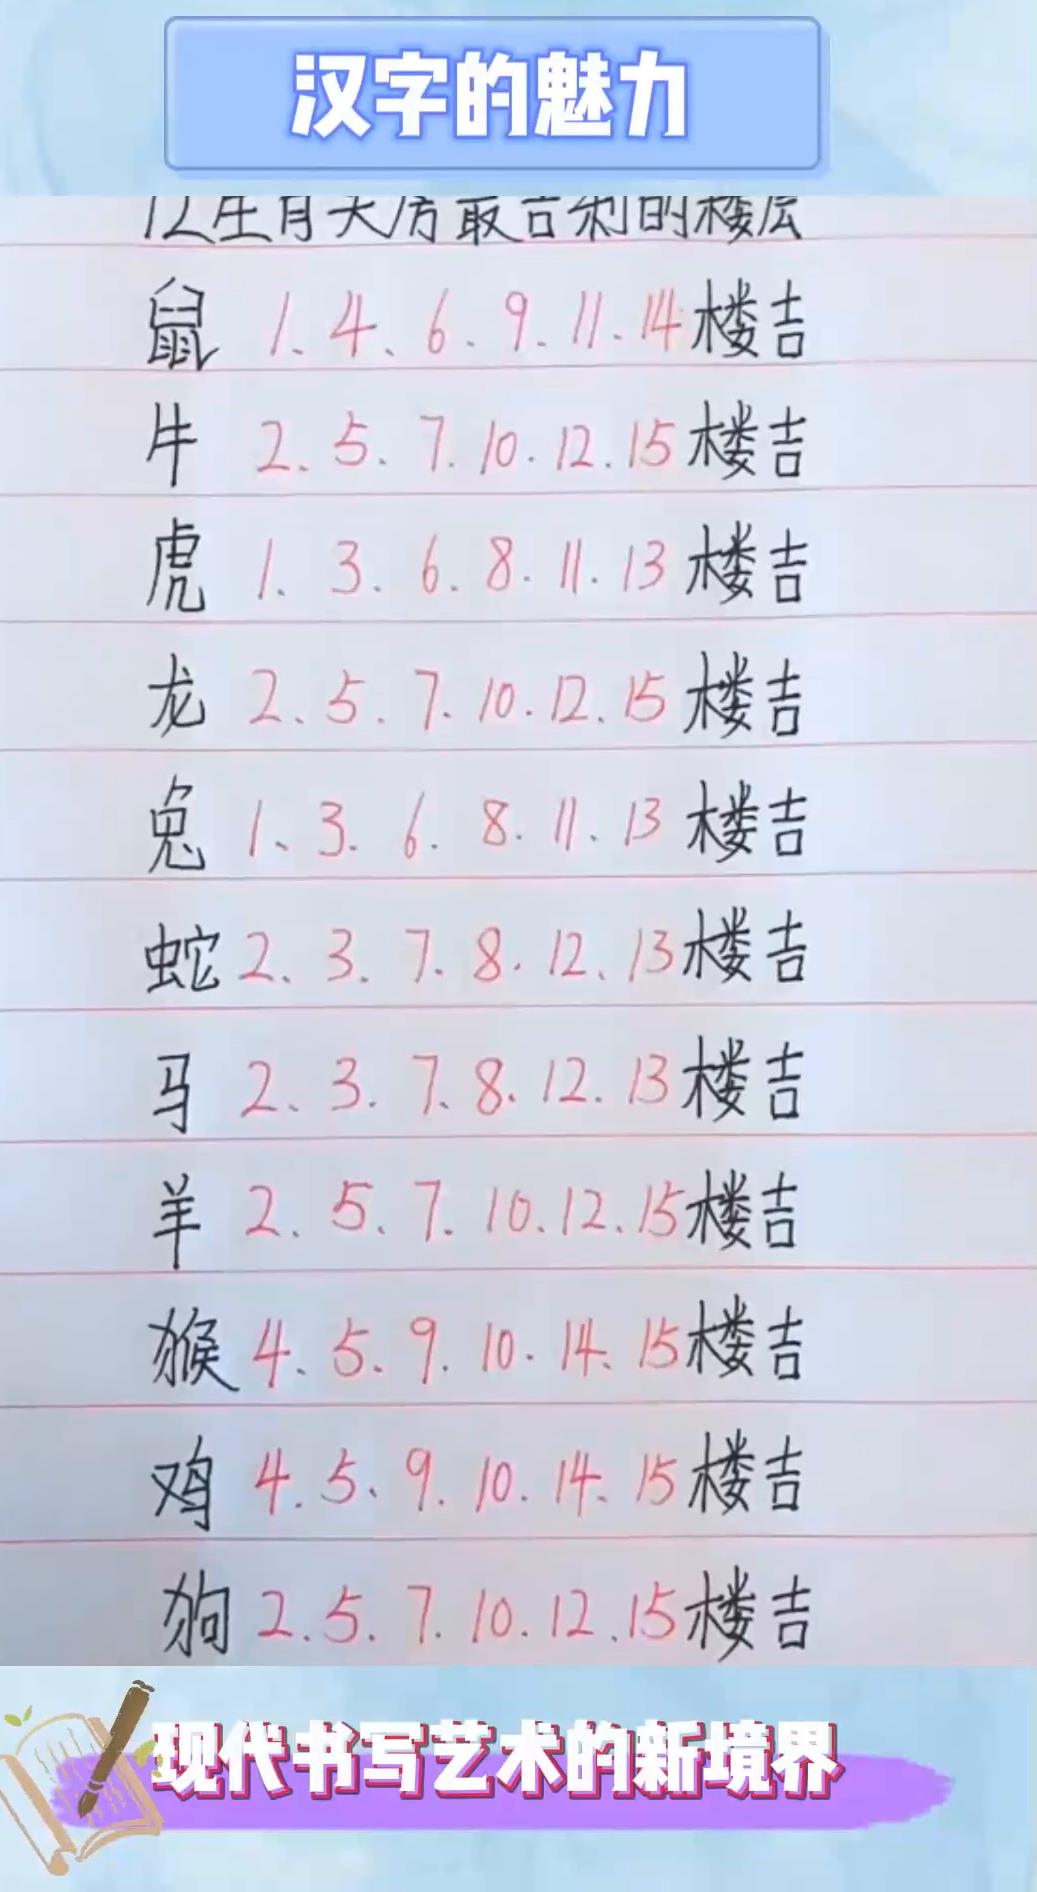 汉字的魅力
12生肖买房最吉利的楼层
鼠 1、4、6.9.11.14楼吉
牛 2、5.7.10.12.15楼吉
虎 1、3.6.8.11.13楼吉
龙 2、5.7.10.12.15楼吉
兔 1、3.6.8.11、13楼吉
蛇 2、3.7.8.12、13楼吉
马 2、3.7.8.12.13楼吉
羊 2、5、7.10.12.15楼吉
猴 4、5、9.10.14、15楼吉
鸡 4.5、9.10.14、15楼吉
狗 2.5.7.10.12.15楼吉
现代书写艺术的新境界